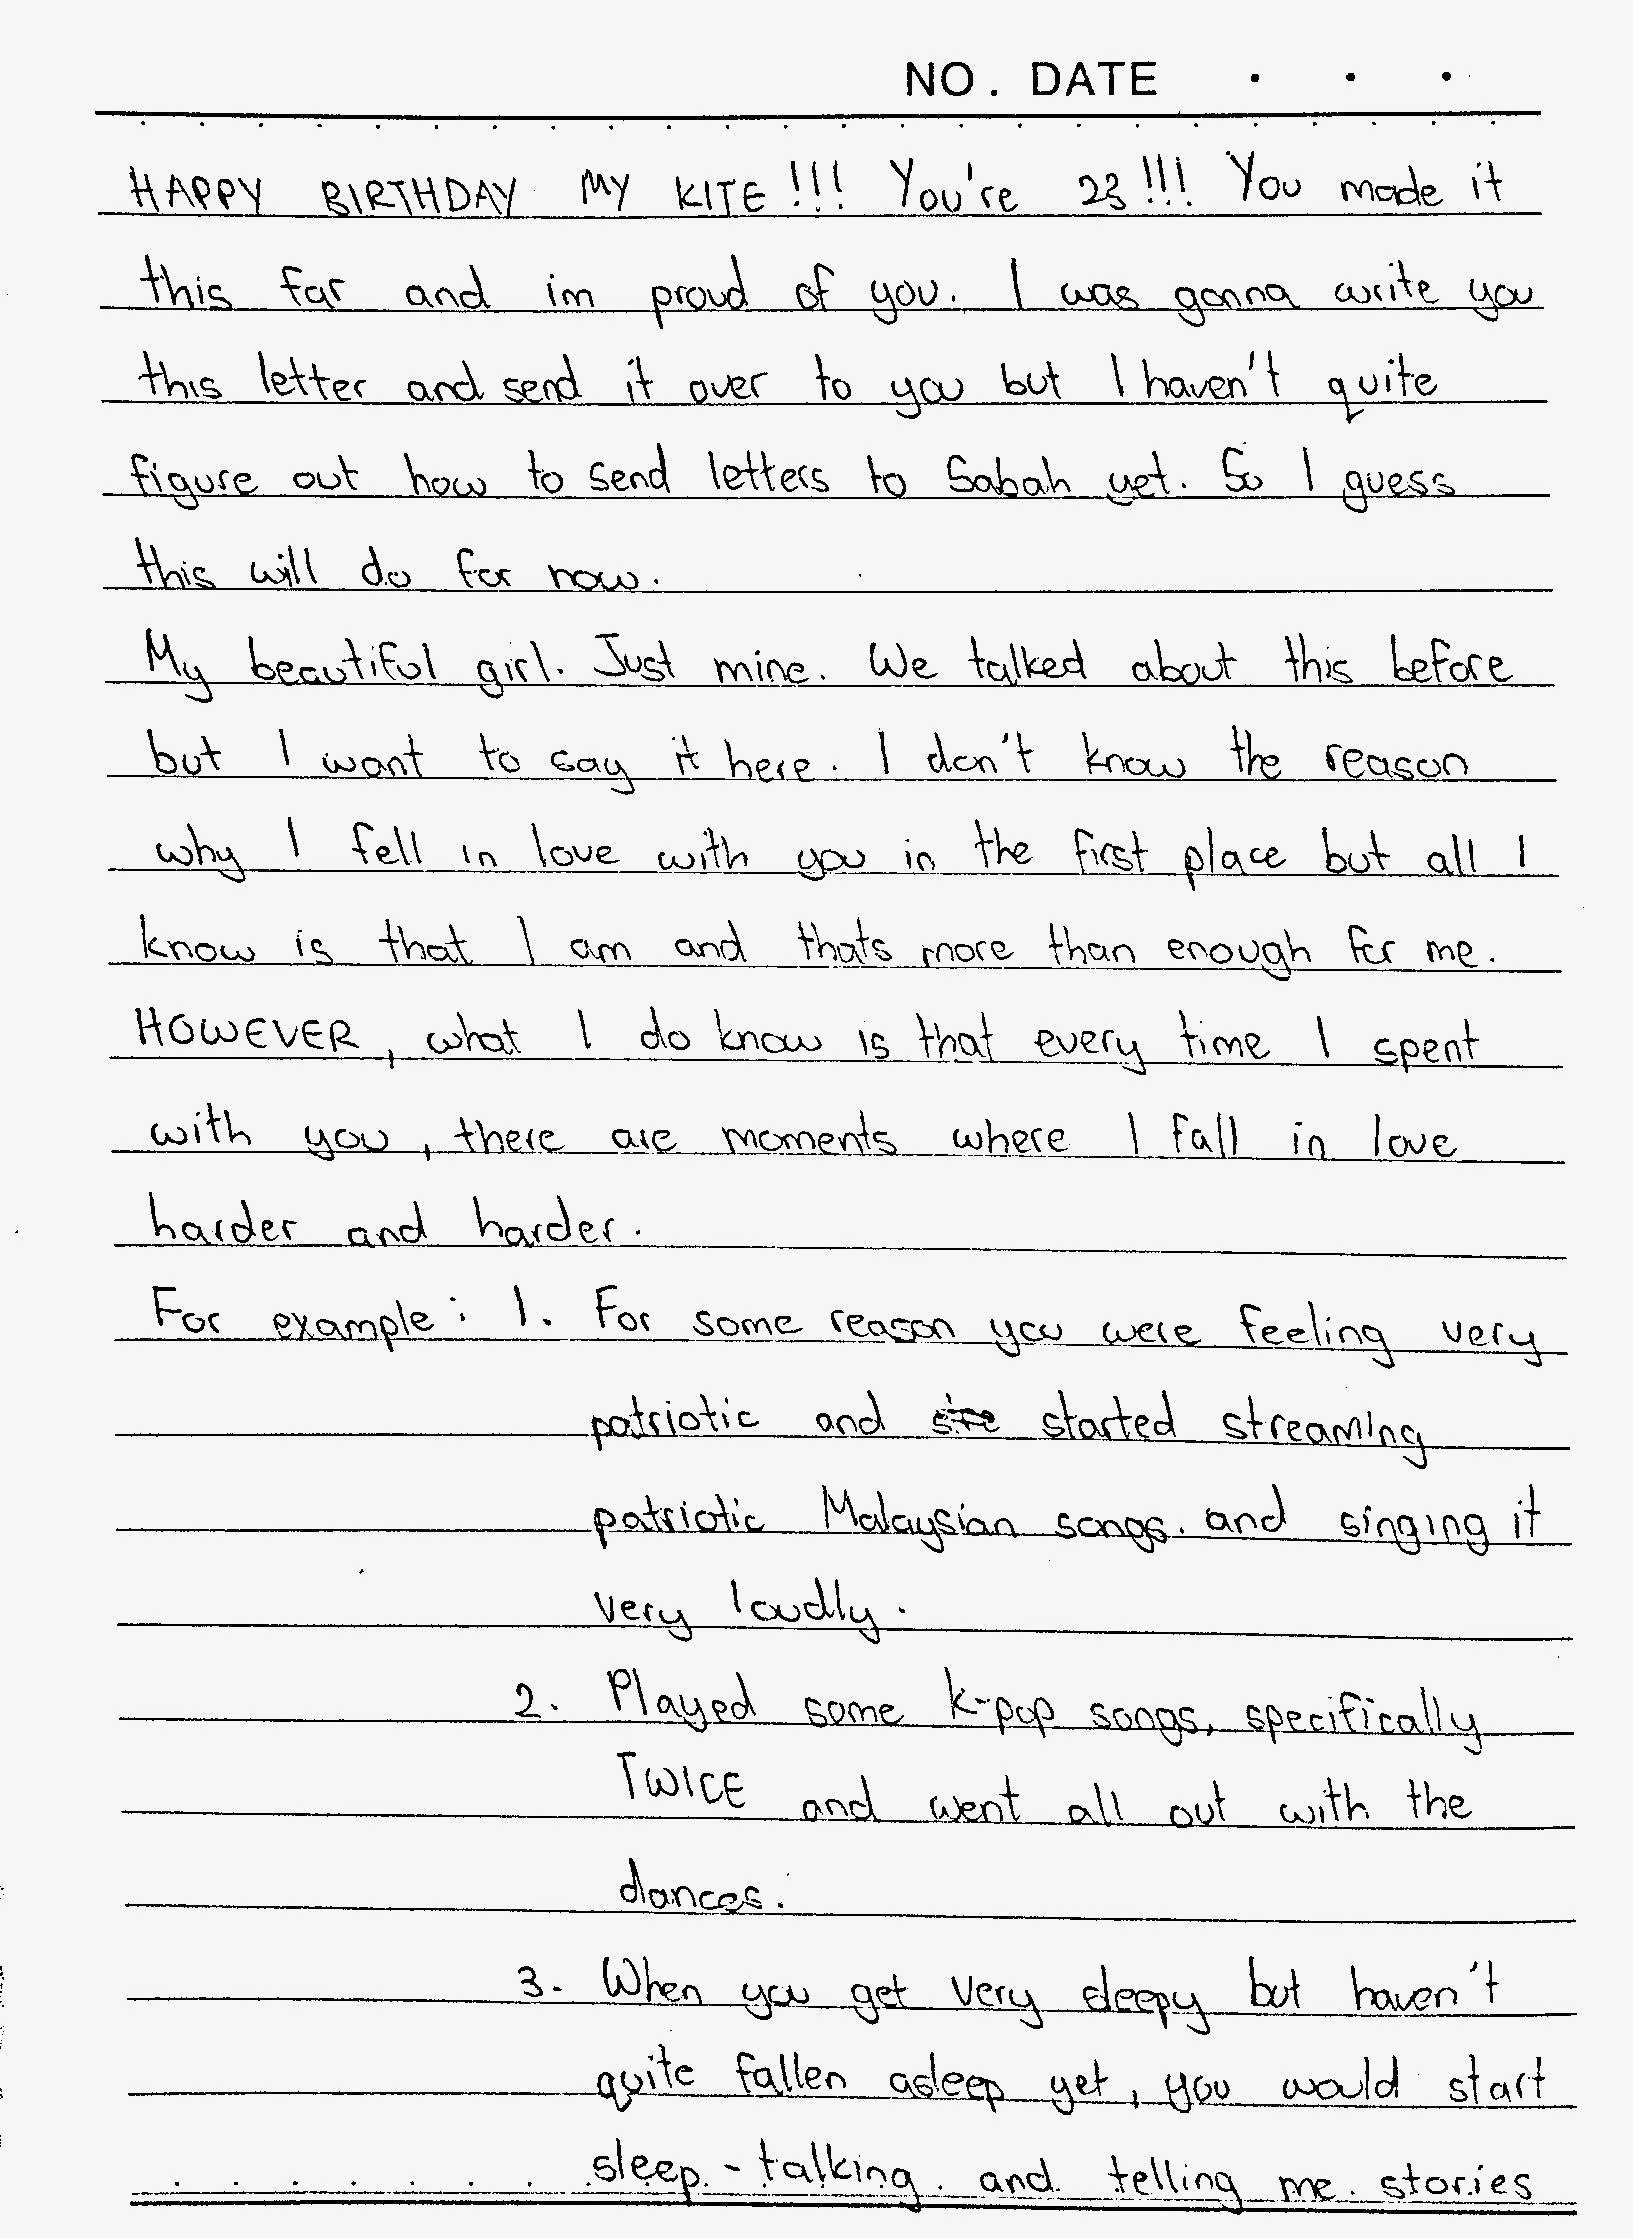 NO. DATE . . .
HAPPY BIRTHDAY MY KITE!!! You're 23!!! You made it
this far and im proud of you. I was gonna write you
this letter and send it over to you but I haven't quite
figure out how to send letters to Sabah yet. So I guess
this will do for now.
My beautiful girl. Just mine. We talked about this before
but I want to say it here. I don't know the reason
why I fell in love with you in the first place but all I
know is that I am and thats more than enough for me.
HOWEVER, what I do know is that every time I spent
with you, there are moments where I fall in love
harder and harder.
For example: 1. For some reason you were feeling very
patriotic and started streaming
patriotic Malaysian songs. and singing it
very loudly.
2. Played some k-pop songs, specifically
TWICE and went all out with the
dances.
3. When you get very sleepy but haven't
quite fallen asleep yet, you would start
sleep-talking and telling me stories